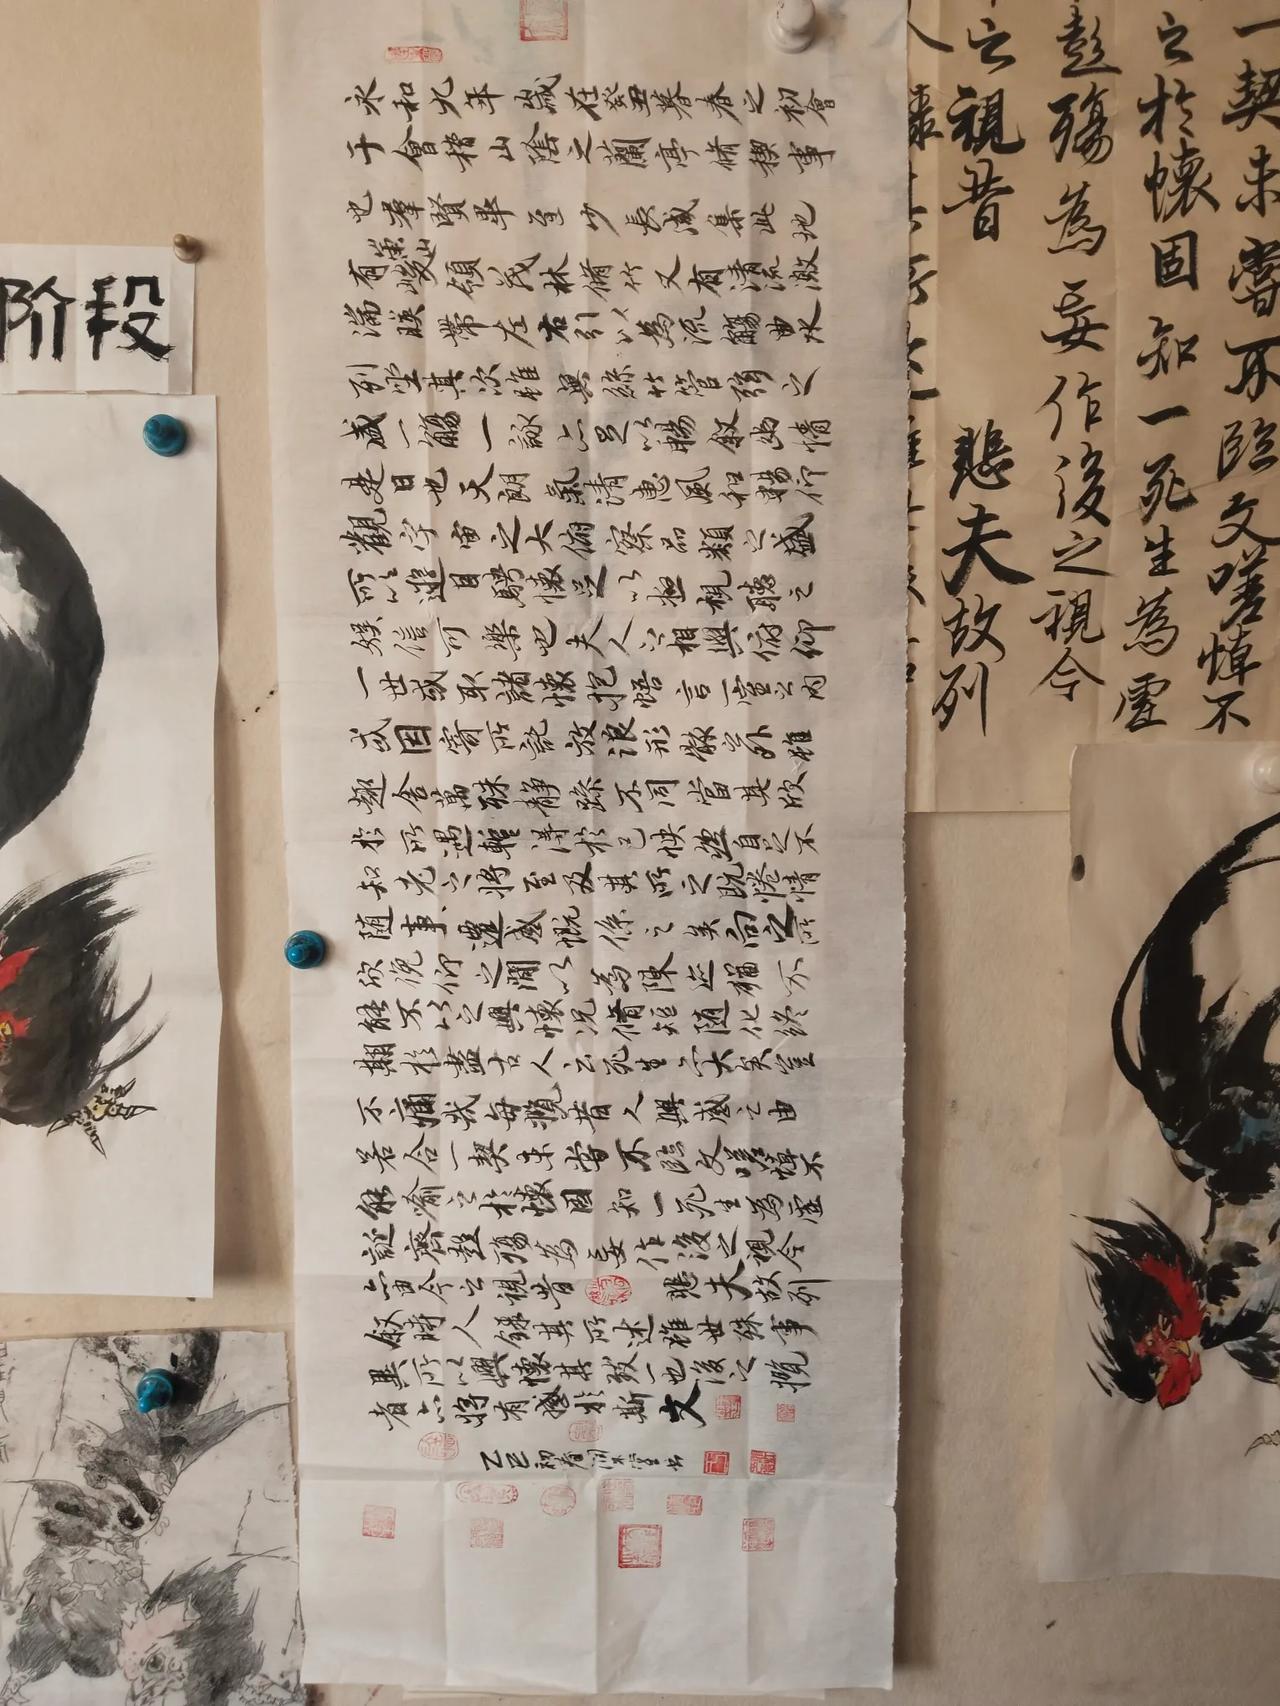 永和九年歲在癸丑暮春之初會
于會稽山陰之蘭亭脩禊事
也羣賢畢至少長咸集此地
有崇山峻領茂林脩竹又有清流激
湍暎帶左右引以為流觴曲水
列坐其次雖無絲竹管弦之
盛一觴一詠亦足以暢叙幽情
是日也天朗氣清惠風和暢仰
觀宇宙之大俯察品類之盛
所以遊目騁懷足以極視聽之
娛信可樂也夫人之相與俯仰
一世或取諸懷抱悟言一室之內
或因寄所託放浪形骸之外雖
趣舍萬殊靜躁不同當其欣
於所遇暫得於己怏然自足不
知老之將至及其所之既惓情
隨事遷感慨係之矣向之所
欣俛仰之閒以為陳迹猶不
能不以之興懷況脩短隨化終
期於盡古人云死生亦大矣豈
不痛哉每攬昔人興感之由
若合一契未嘗不臨文嗟悼不
能喻之於懷固知一死生為虛
誕齊彭殤為妄作後之視今
亦由今之視昔悲夫故列
叙時人錄其所述雖世殊事
異所以興懷其致一也後之攬
者亦將有感於斯文
乙巳初春
一契未嘗不臨文嗟悼不
之於懷固知一死生為虛
彭殤為妄作後之視今
之視昔悲夫故列
阶段